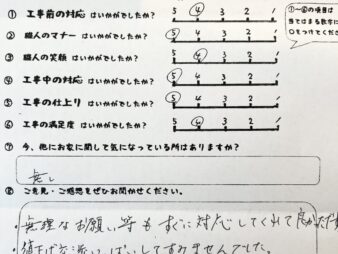 ① 工事前の対応 はいかがでしたか? 5 4 3 2 1
② 職人のマナー はいかがでしたか? 5 4 3 2 1
③ 職人の笑顔 はいかがでしたか? 5 4 3 2 1
④ 工事中の対応 はいかがでしたか? 5 4 3 2 1
⑤ 工事の仕上り はいかがでしたか? 5 4 3 2 1
⑥ 工事の満足度 はいかがでしたか? 5 4 3 2 1
①〜⑥の項目は
当てはまる数字に
○をつけてください
⑦ 今、他にお家に関して気になっている所はありますか?
無し
⑧ ご意見・ご感想をぜひお聞かせください。
・無理なお願い等もすぐに対応してくれて良かった
・値下げ いっぱいしてすみませんでした。